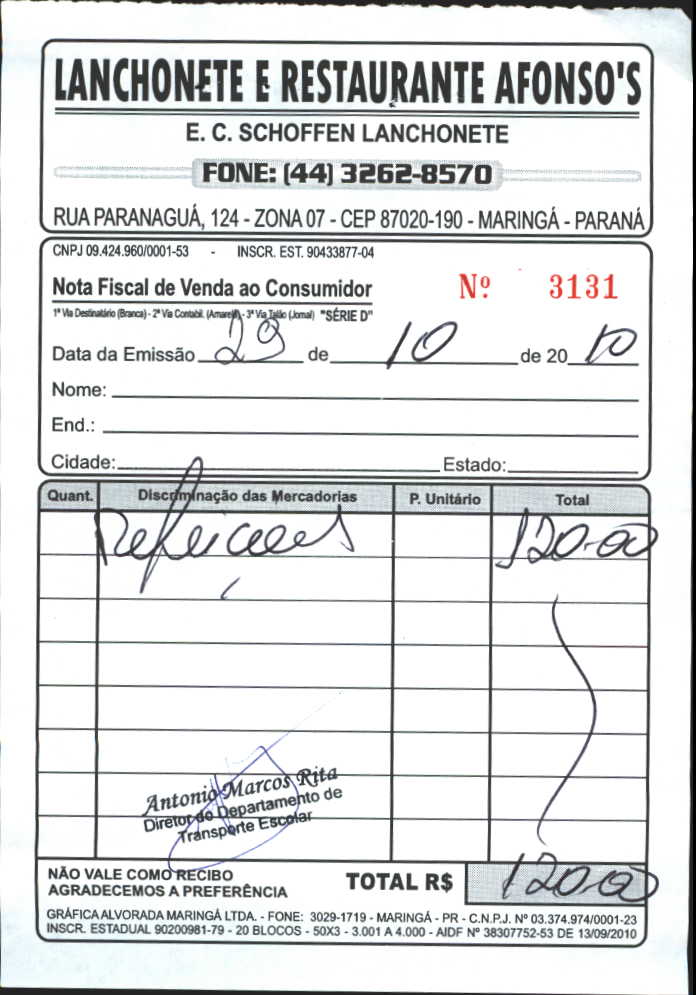 LANCHONETE E RESTAURANTE AFONSO'S
E. C. SCHOFFEN LANCHONETE
FONE: (44) 3262-8570
RUA PARANAGUÁ, 124 - ZONA 07 - CEP 87020-190 - MARINGÁ - PARANÁ
CNPJ 09.424.960/0001-53 - INSCR. EST. 90433877-04
Nota Fiscal de Venda ao Consumidor Nº 3131
1ª Via Destinatário (Branca) - 2ª Via Contabil. (Amarela) - 3ª Via Talão (Jornal) "SÉRIE D"
Data da Emissão 29 de 10 de 2010
Nome:
End.:
Cidade: Estado:
Quant. Discriminação das Mercadorias P. Unitário Total
Refeicoes 120-00
Antonio Marcos Rita
Diretor do Departamento de
Transporte Escolar
NÃO VALE COMO RECIBO
AGRADECEMOS A PREFERÊNCIA
TOTAL R$ 120-00
GRÁFICA ALVORADA MARINGÁ LTDA. - FONE: 3029-1719 - MARINGÁ - PR - C.N.P.J. Nº 03.374.974/0001-23
INSCR. ESTADUAL 90200981-79 - 20 BLOCOS - 50X3 - 3.001 A 4.000 - AIDF Nº 38307752-53 DE 13/09/2010